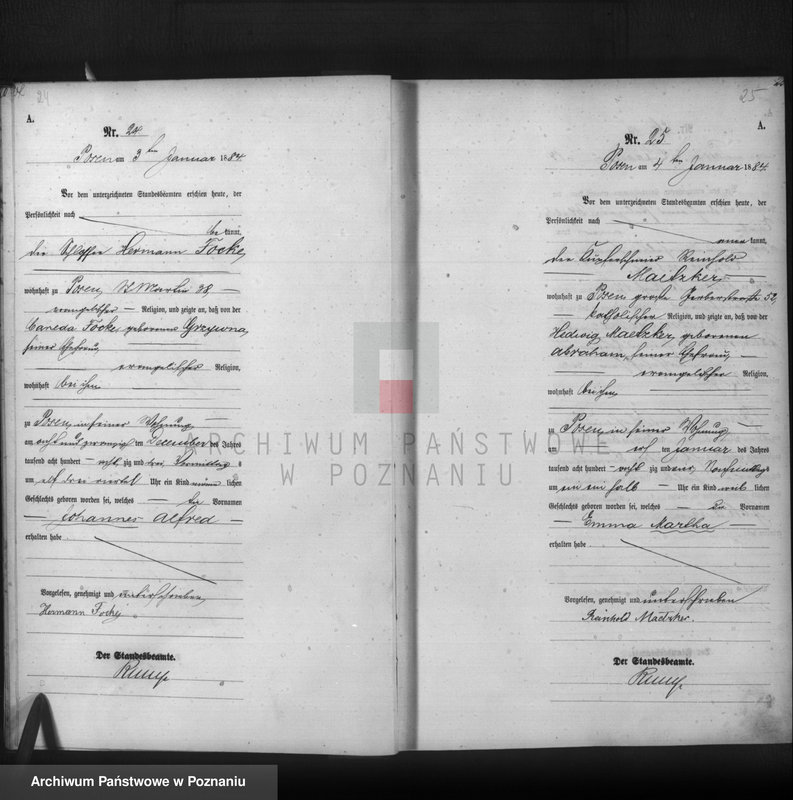 24
A.
Nr. 24
Posen am 3 ten Januar 1884.
Vor dem unterzeichneten Standesbeamten erschien heute, der
Persönlichkeit nach
be kannt,
der Schlosser Hermann Focke,
wohnhaft zu Posen, St Martin
evangelischer Religion, und zeigte an, daß von der
Focke, geborenen Grzywna,
seiner Ehefrau,
evangelischer Religion,
wohnhaft bei ihm
zu Posen, in seiner Wohnung
am acht und zwanzig ten December des Jahres
tausend acht hundert acht zig und drei, Vormittags
um elf drei viertel Uhr ein Kind männ lichen
Geschlechts geboren worden sei, welches die Vornamen
Johannes Alfred
erhalten habe.
Vorgelesen, genehmigt und unterschrieben,
Hermann Focke
Der Standesbeamte.
25
A.
Nr. 25
Posen am 4 ten Januar 1884.
Vor dem unterzeichneten Standesbeamten erschien heute, der
Persönlichkeit nach
kannt,
der Kupferschmied Reinhold
Maetzker,
wohnhaft zu Posen große Gerberstraße 52,
katholischer Religion, und zeigte an, daß von der
Hedwig Maetzker, geborenen
Abraham, seiner Ehefrau,
evangelischer Religion,
wohnhaft bei ihm
zu Posen, in seiner Wohnung
am ten Januar des Jahres
tausend acht hundert acht zig und vier, Nachmittags
um ein ein halb Uhr ein Kind weib lichen
Geschlechts geboren worden sei, welches die Vornamen
Emma Martha
erhalten habe.
Vorgelesen, genehmigt und unterschrieben
Reinhold Maetzker.
Der Standesbeamte.
ARCHIWUM PAŃSTWOWE
W POZNANIU
Archiwum Państwowe w Poznaniu